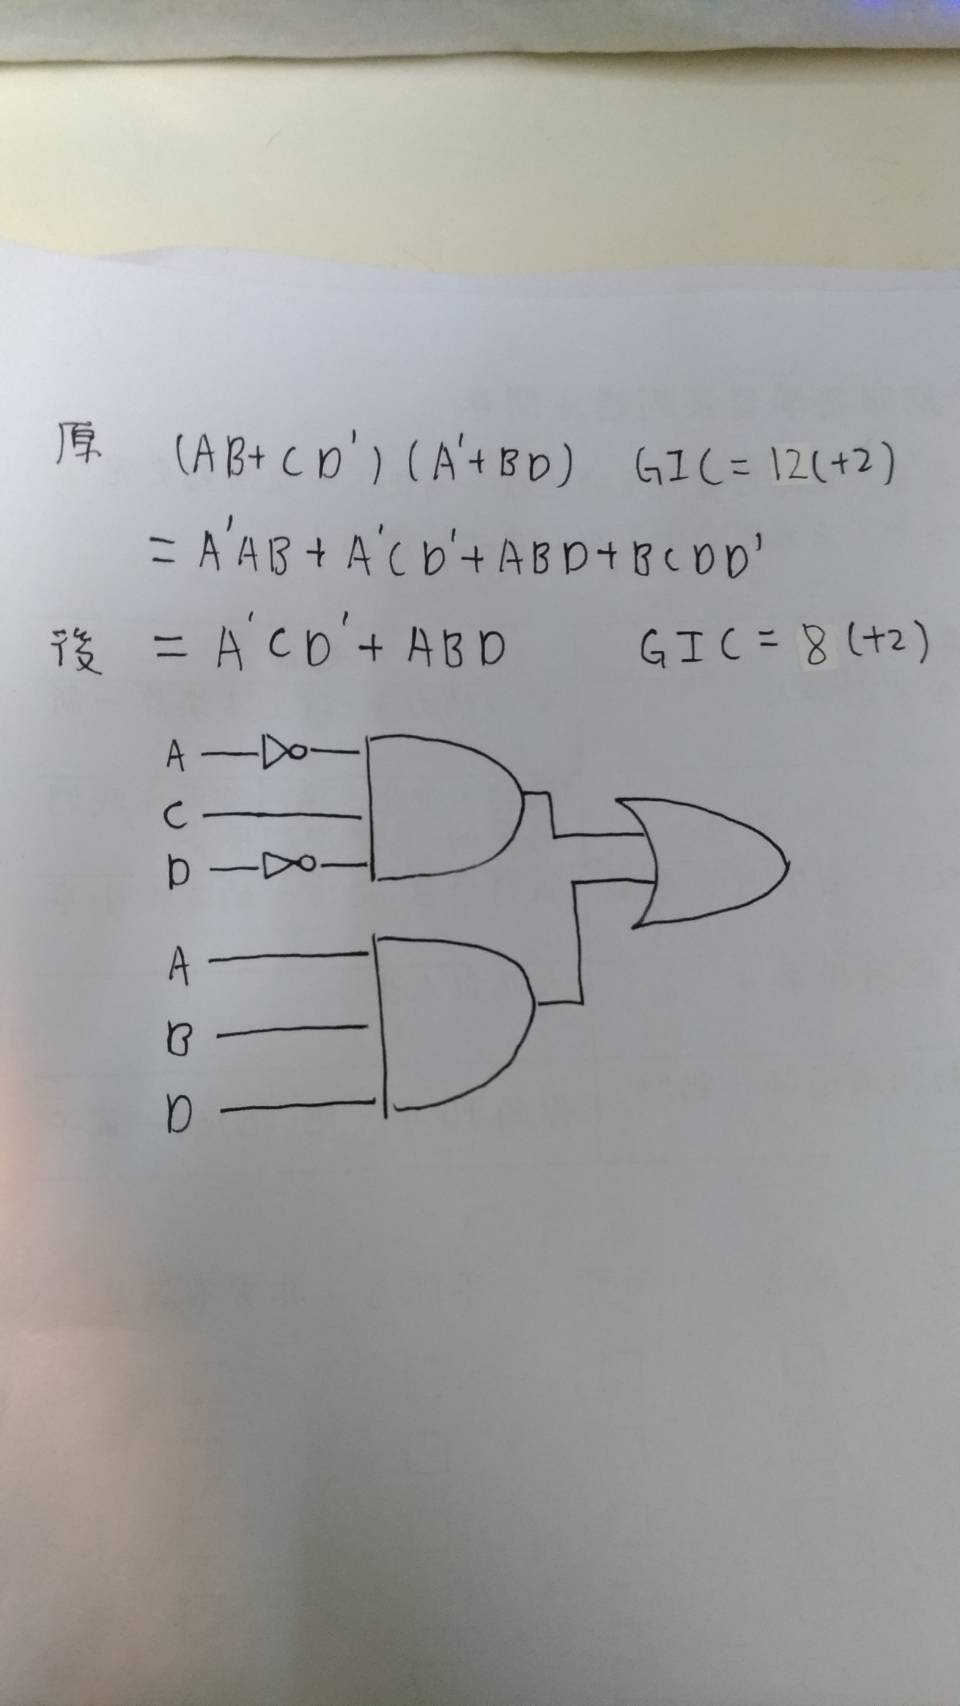 原 (AB+CD')(A'+BD) GIC=12(+2)
=A'AB+A'CD'+ABD+BCDD'
後 =A'CD'+ABD GIC=8(+2)
A
C
D
A
B
D